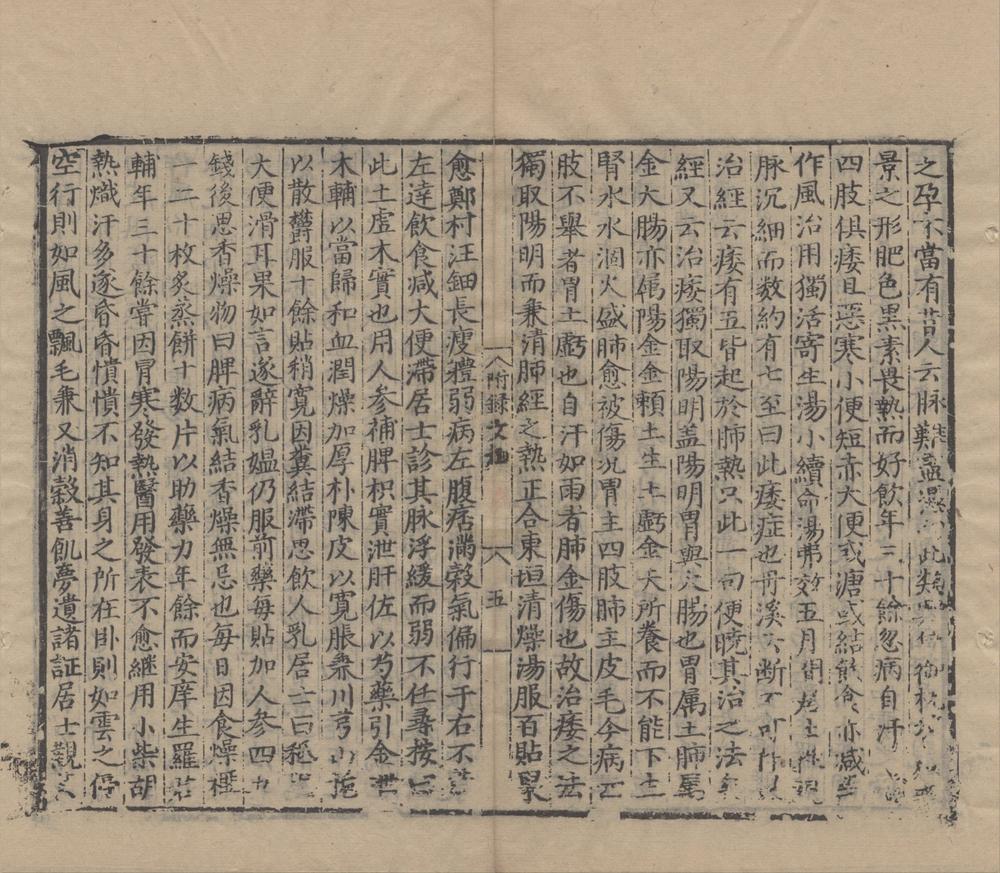 之孕不當有昔人云脉難盡此類
景之形肥色黑素畏熱而好飲年三十餘忽病自汗
四肢俱痿且惡寒小便短赤大便或溏或結飲食亦减
作風治用獨活寄生湯小續命湯弗效五月間居士
脉沉細而數約有七至曰此痿症也丹溪云斷不可作
治經云痿有五皆起於肺熱只此一句便曉其治之法
經又云治痿獨取陽明盖陽明胃與大腸也胃属土肺屬
金大腸亦屬陽金金頼土生土虧金失所養而不能下生
腎水水涸火盛肺愈被傷况胃主四肢肺主皮毛今病
肢不舉者胃土虧也自汗如雨者肺金傷也故治痿之法
獨取陽明而兼清肺經之熱正合東垣清燥湯服百貼果
附録
五
愈鄭村汪鈿長瘦體弱病左腹痞滿穀氣偏行于右不
左達飲食减大便滯居士診其脉浮緩而弱不任尋按
此土虛木實也用人参補脾枳實泄肝佐以芍藥引金
木輔以當歸和血潤燥加厚朴陳皮以寛脹兼川芎山梔
以散鬱服十餘貼稍寛因糞結滯思飲人乳居士曰
大便滑耳果如言遂辭乳媪仍服前藥每貼加人参四
錢後思香燥物曰脾病氣結香燥無忌也每日因食燥榧
一二十枚炙蒸餅十數片以助藥力年餘而安庠生羅君
輔年三十餘嘗因冒寒發熱醫用發表不愈繼用小柴胡
熱熾汗多遂昏昏憒憒不知其身之所在卧則如雲之停
空行則如風之飄毛兼又消穀善飢夢遺諸証居士觀